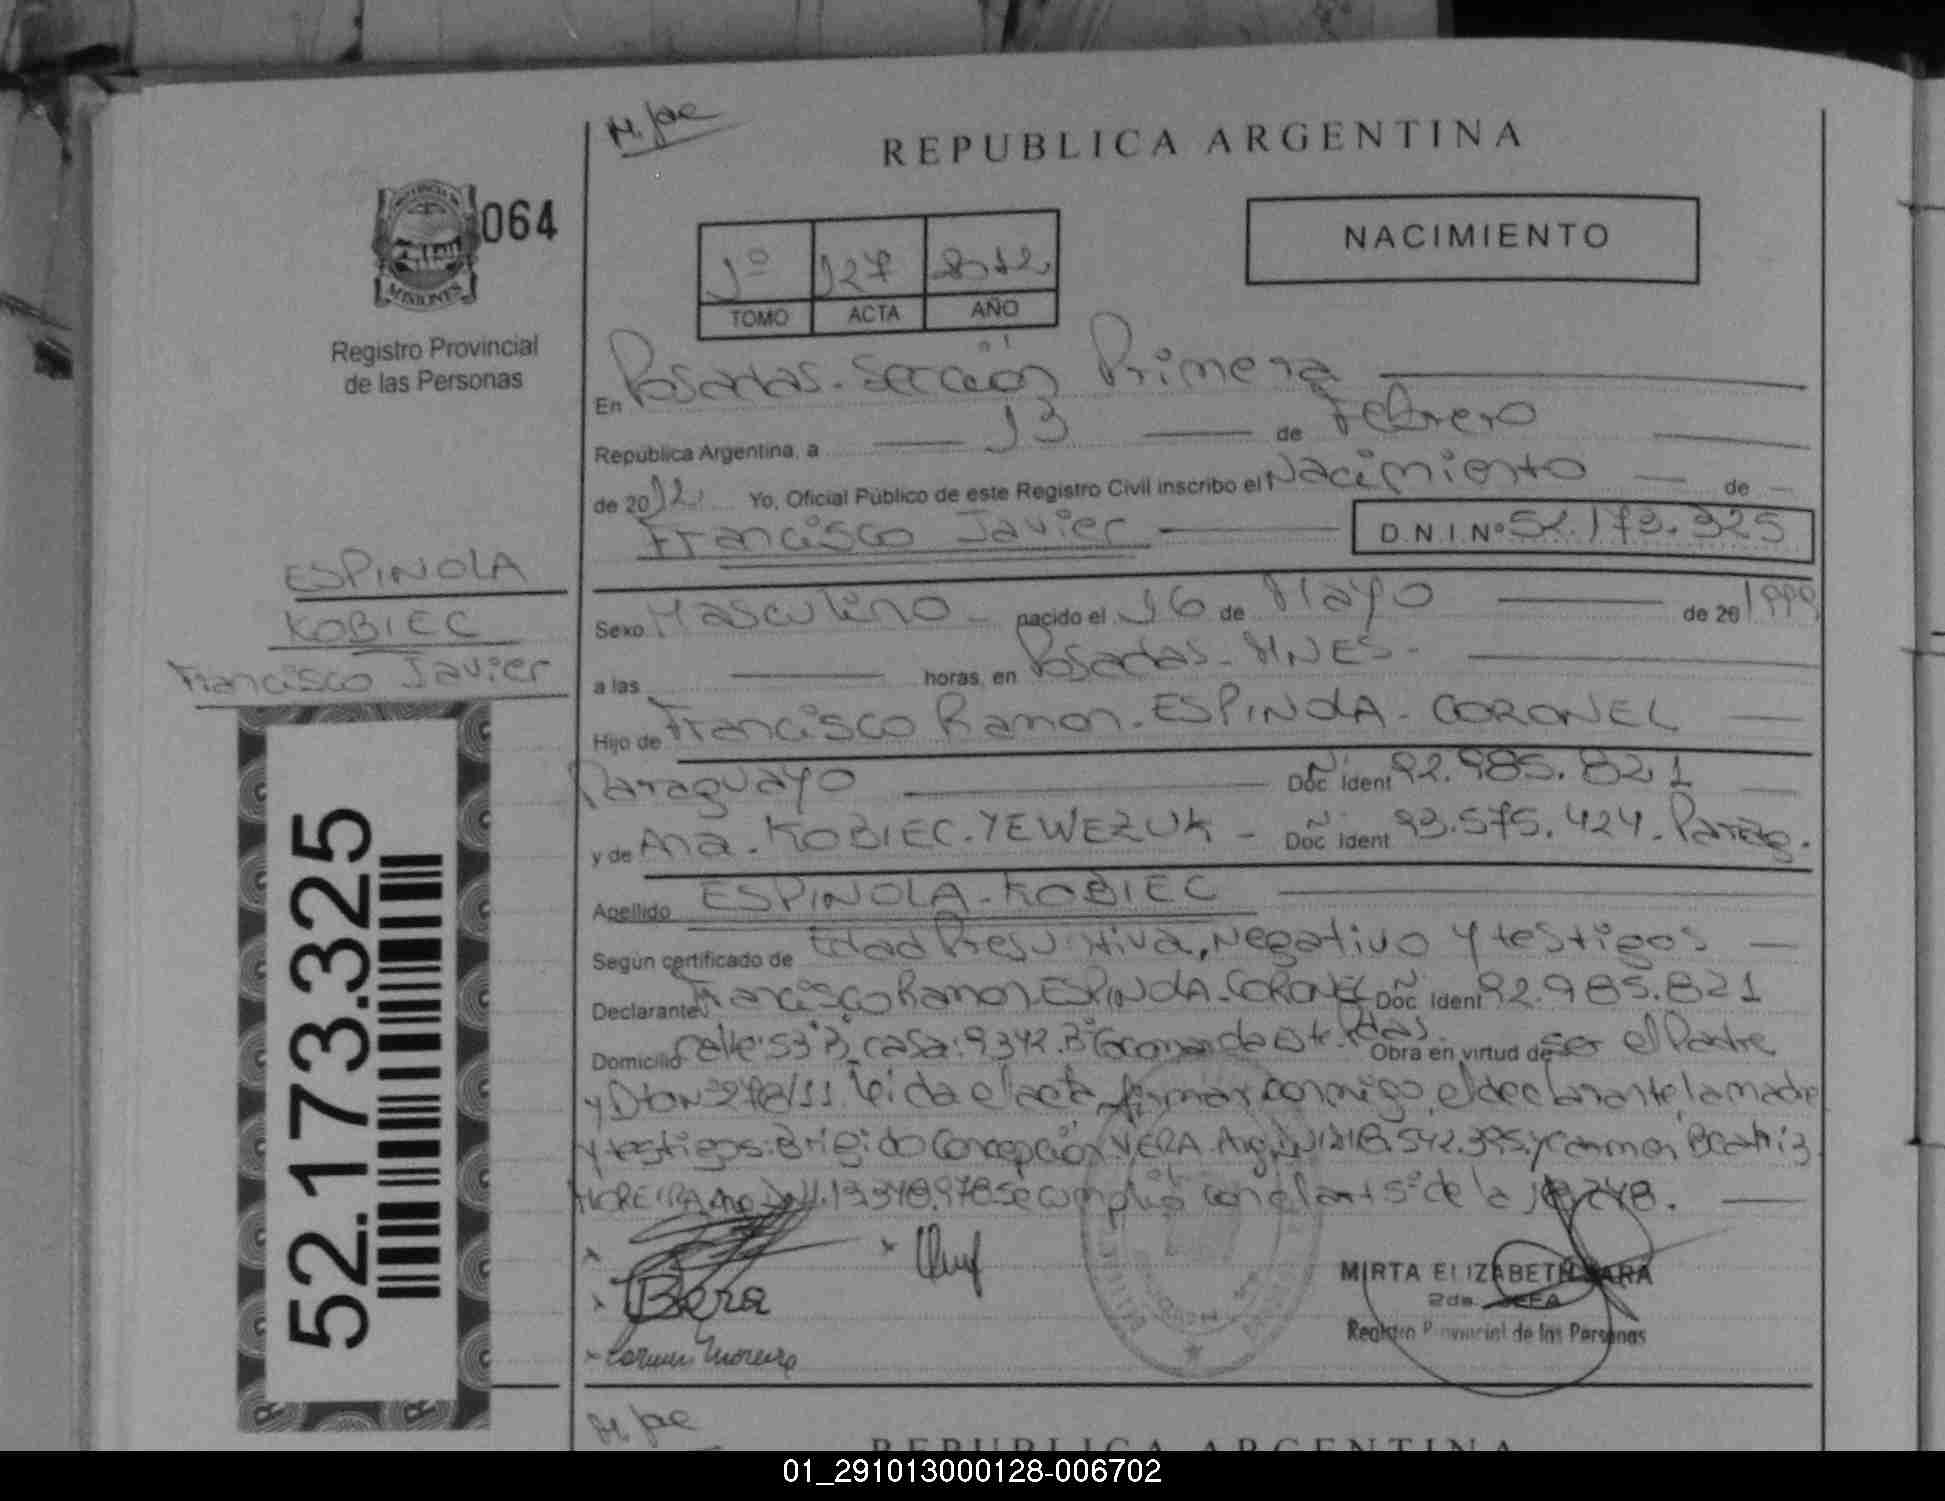 H. Jae
REPUBLICA ARGENTINA
PROVINCIA DE
MISIONES
064
Registro Provincial
de las Personas
NACIMIENTO
1º 127 2012
TOMO ACTA AÑO
En Posadas. Sección Primera
República Argentina, a 13 de Febrero
de 2012. Yo, Oficial Público de este Registro Civil inscribo el Nacimiento de
Francisco Javier D.N.I. Nº 52.173.325
ESPINOLA
KOBIEC
Francisco Javier
Sexo Masculino - nacido el 16 de Mayo de 20 1999
a las horas, en Posadas - MNES -
Hijo de Francisco Ramon - ESPINOLA - CORONEL
Paraguayo Doc Ident Nº 92.985.821
y de Ana - KOBIEC - YEWEZUK - Doc Ident Nº 93.575.424 - Parag.
Apellido ESPINOLA - KOBIEC
Según certificado de Edad Presuntiva, Negativo y testigos
Declarante Francisco Ramon ESPINOLA - CORONEL Doc Ident Nº 92.985.821
Domicilio Calle: 53 B, casa: 9342. Bº Pdas. Obra en virtud de ser el Padre
y Dto Nº 278/11 leida el acta firman conmigo, el declarante, la madre
y testigos: Brigido Concepción VERA Arg. 18.542.395 y Carmen Beatriz
MOREIRA Arg. 13.348.978. Se cumplio con el art 5º de la 18248.
Bera
Carmen Moreira
MIRTA ELIZABETH JARA
2da. JEFA
Registro Provincial de las Personas
52.173.325
H. Jae
REPUBLICA ARGENTINA
01_291013000128-006702